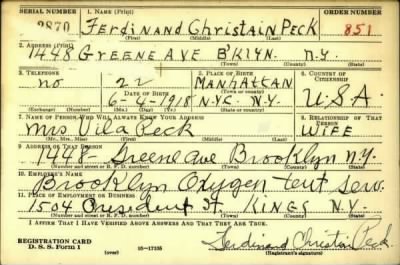 SERIAL NUMBER 1. NAME (Print) ORDER NUMBER
2870 FERDINAND CHRISTAIN PECK 851
(First) (Middle) (Last)
2. ADDRESS (Print)
1448 GREENE AVE B'KLYN. N.Y.
(Number and street or R. F. D. number) (Town) (County) (State)
3. TELEPHONE 4. AGE IN YEARS 5. PLACE OF BIRTH 6. COUNTRY OF CITIZENSHIP
no 22 MANHATTAN
DATE OF BIRTH (Town or county)
6-4-1918 N.Y.C. N.Y. U.S.A.
(Exchange) (Number) (Mo.) (Day) (Yr.) (State or country)
7. NAME OF PERSON WHO WILL ALWAYS KNOW YOUR ADDRESS 8. RELATIONSHIP OF THAT PERSON
Mrs Peck WIFE
(Mr., Mrs., Miss) (First) (Middle) (Last)
9. ADDRESS OF THAT PERSON
1448- Greene Ave Brooklyn N.Y.
(Number and street or R. F. D. number) (Town) (County) (State)
10. EMPLOYER'S NAME
Brooklyn Oxygen tent Serv.
11. PLACE OF EMPLOYMENT OR BUSINESS
1504 President St. KINGS N.Y.
(Number and street or R. F. D. number) (Town) (County) (State)
I AFFIRM THAT I HAVE VERIFIED ABOVE ANSWERS AND THAT THEY ARE TRUE.
REGISTRATION CARD
D. S. S. Form 1 (over) 16-17105 Ferdinand Christian Peck
(Registrant's signature)